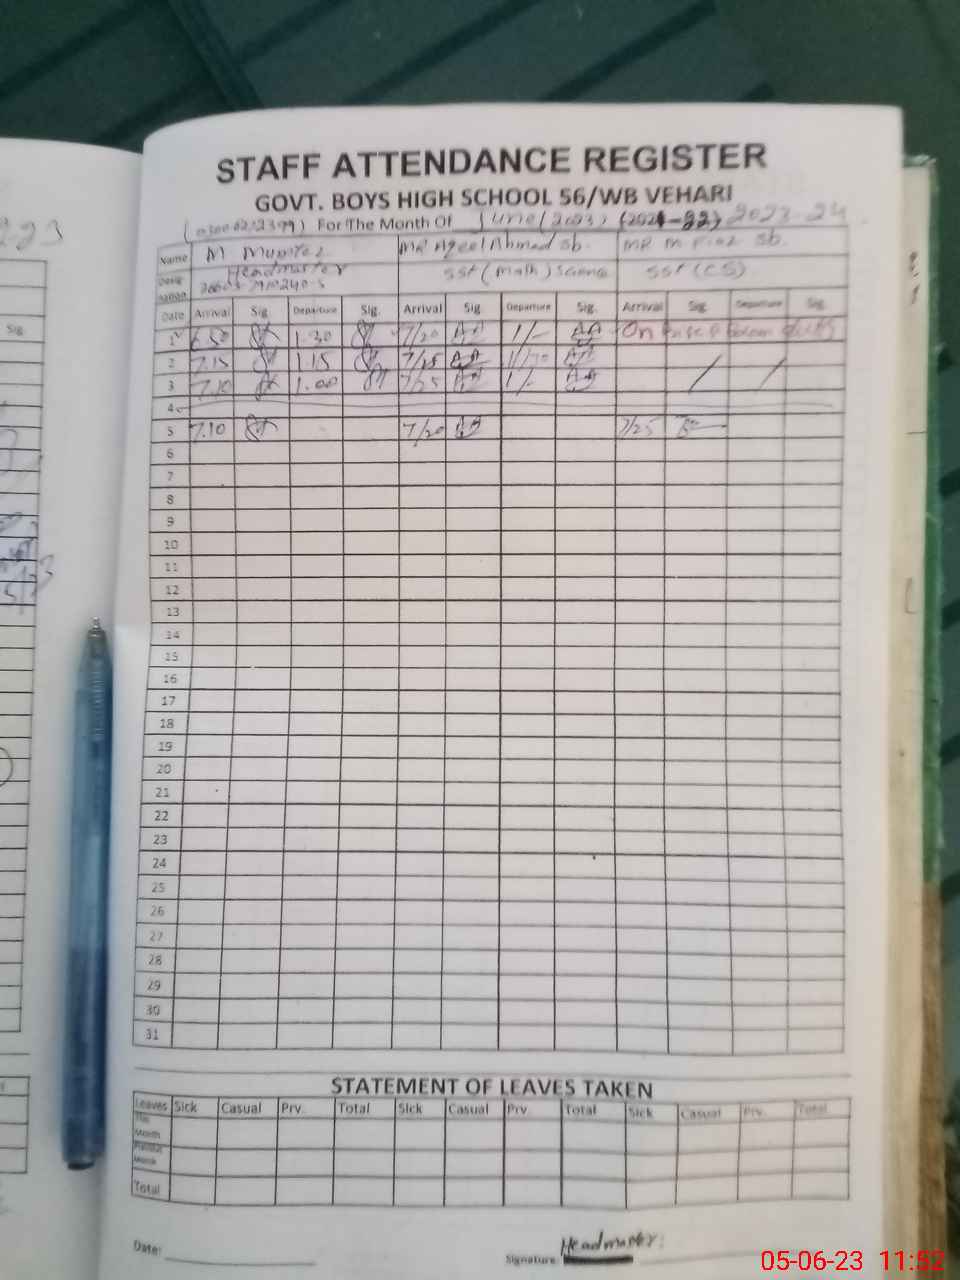 STAFF ATTENDANCE REGISTER
GOVT. BOYS HIGH SCHOOL 56/WB VEHARI
For The Month Of June (2023) 2023-24
Name M Mumtaz MR Aqeel Ahmad Sb. MR M Fiaz Sb.
Desig nation Headmaster SST (Math) Science SST (CS)
Date Arrival Sig. Departure Sig. Arrival Sig Departure Sig. Arrival Sig. Departure Sig.
1 6.50 1.30 7/20 1/- On duty
2 7.15 1.15 7/25
3 7.10 1.00 7/25 1/-
4
5 7.10 7/20 7/25
6
7
8
9
10
11
12
13
14
15
16
17
18
19
20
21
22
23
24
25
26
27
28
29
30
31
STATEMENT OF LEAVES TAKEN
Leaves Sick Casual Prv. Total Sick Casual Prv. Total Sick Casual Prv. Total
This Month
Previous Month
Total
Date:
Signature Headmaster:
05-06-23 11:52
223
Sig.